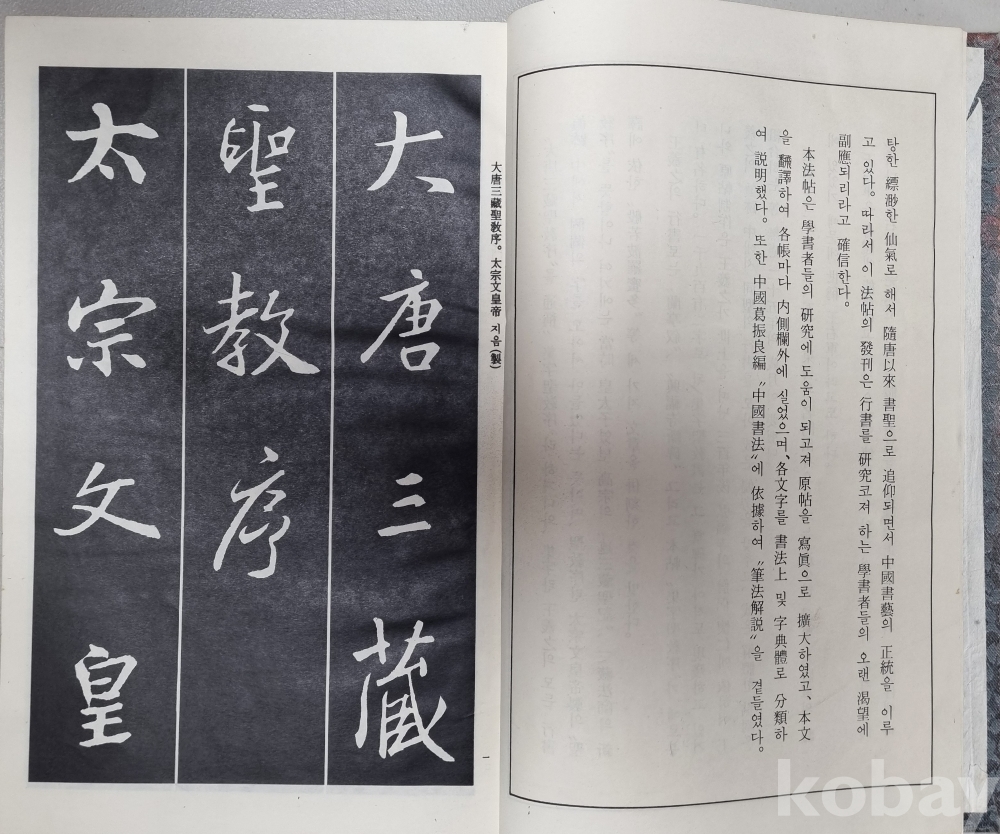 탕한 縹渺한 仙氣로 해서 隋唐以來 書聖으로 追仰되면서 中國書藝의 正統을 이루
고 있다. 따라서 이 法帖의 發刊은 行書를 研究코져 하는 學書者들의 오랜 渴望에
副應되리라고 確信한다.
本法帖은 學書者들의 研究에 도움이 되고져 原帖을 寫眞으로 擴大하였고、本文
을 飜譯하여 各帳마다 內側欄外에 실었으며、各文字를 書法上 및 字典體로 分類하
여 説明했다. 또한 中國葛振良編 "中國書法"에 依據하여 "筆法解説"을 곁들였다.
大唐三藏聖敎序。太宗文皇帝 지음(製)
大唐三藏
聖教序
太宗文皇
一
kobay